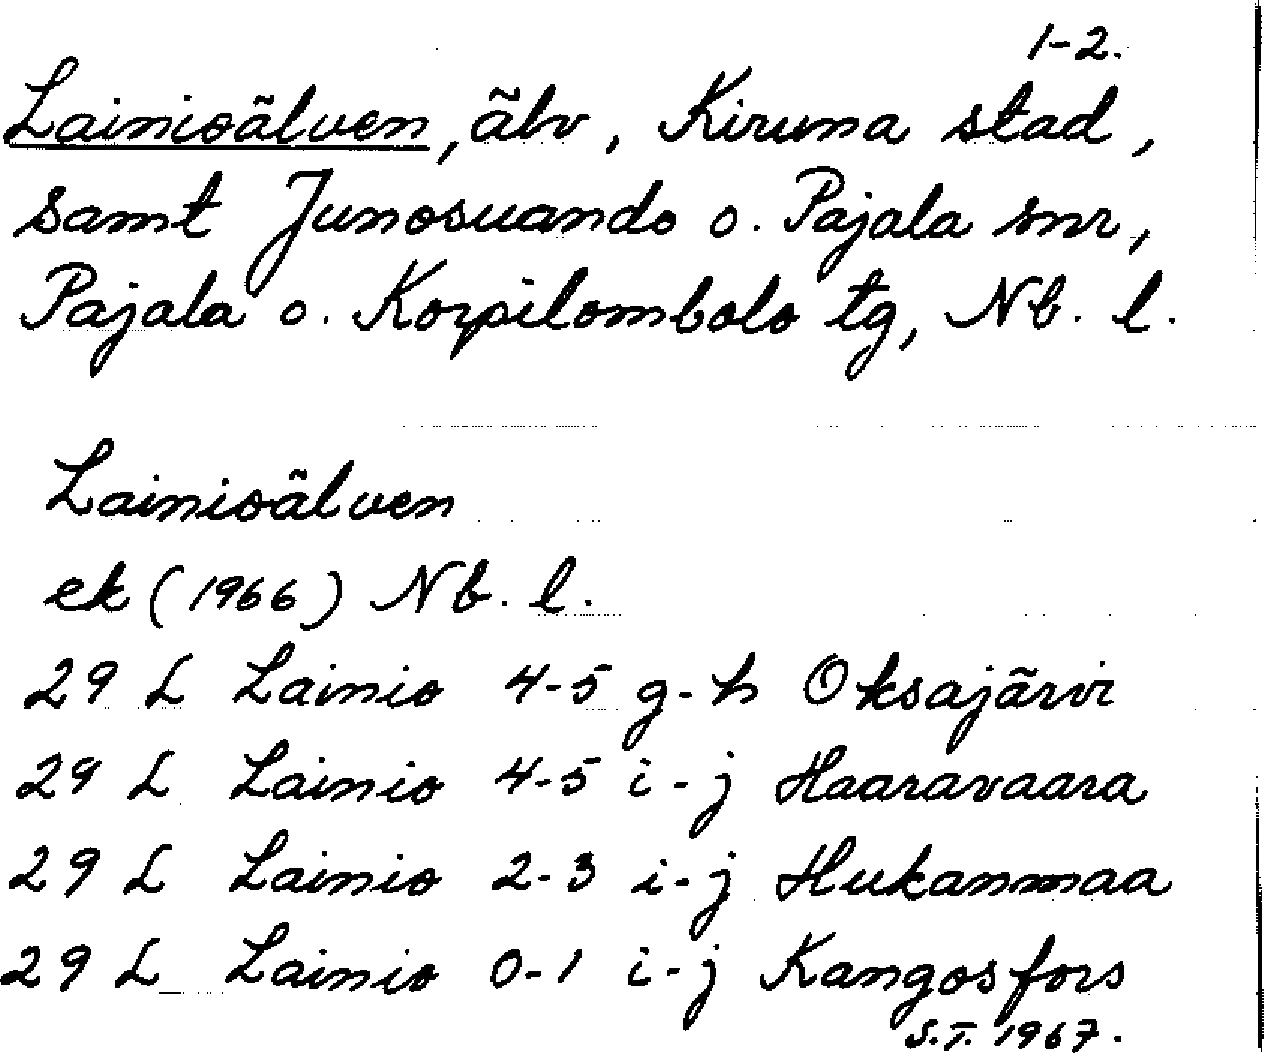 1-2.
Lainioälven, älv, Kiruna stad,
samt Junosuando o. Pajala snr,
Pajala o. Korpilombolo tg, Nb. l.
Lainioälven
ek (1966) Nb. l.
29 L Lainio 4-5 g-h Oksajärvi
29 L Lainio 4-5 i-j Haaravaara
29 L Lainio 2-3 i-j Hukanmaa
29 L Lainio 0-1 i-j Kangosfors
S.T. 1967.